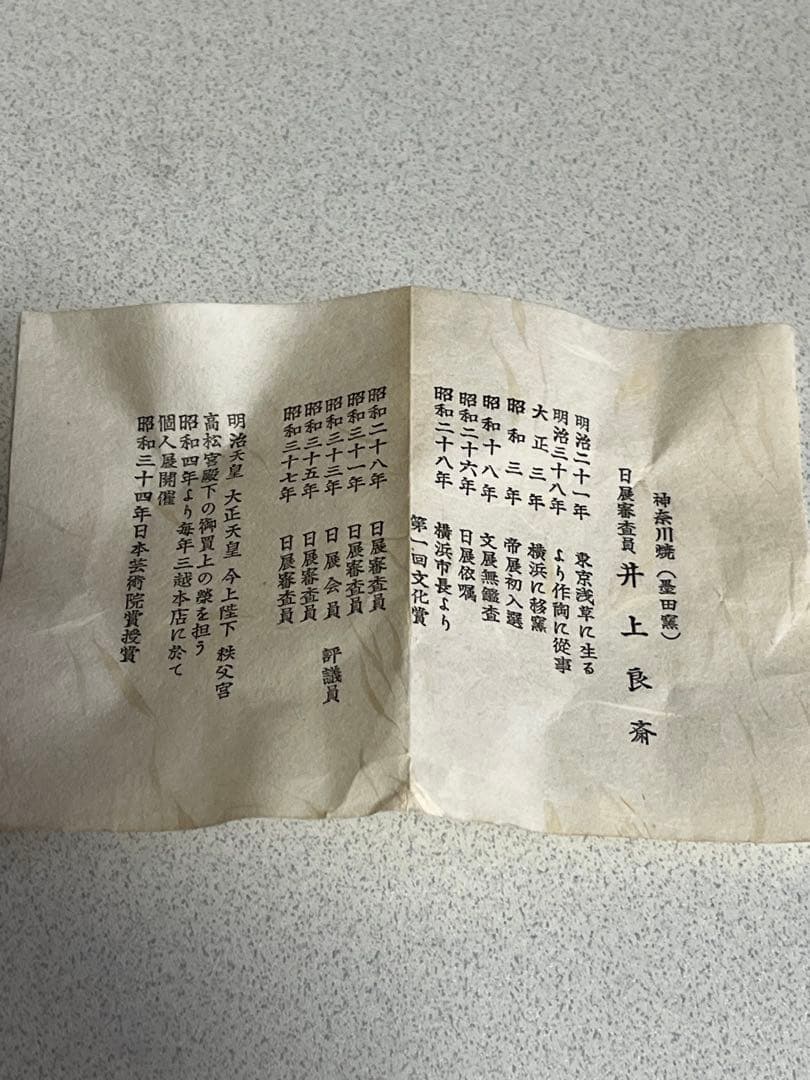 神奈川焼(墨田窯)
日展審査員 井上良斎
明治二十一年 東京浅草に生る
明治三十八年 より作陶に從事
大正三年 横浜に移窯
昭和三年 帝展初入選
昭和十八年 文展無鑑査
昭和二十六年 日展依嘱
昭和二十八年 横浜市長より
第一回文化賞
昭和二十八年 日展審査員
昭和三十一年 日展審査員
昭和三十三年 日展会員 評議員
昭和三十五年 日展審査員
昭和三十七年 日展審査員
明治天皇 大正天皇 今上陛下 秩父宮
高松宮殿下の御買上の榮を担う
昭和四年より毎年三越本店に於て
個人展開催
昭和三十四年日本芸術院賞授賞